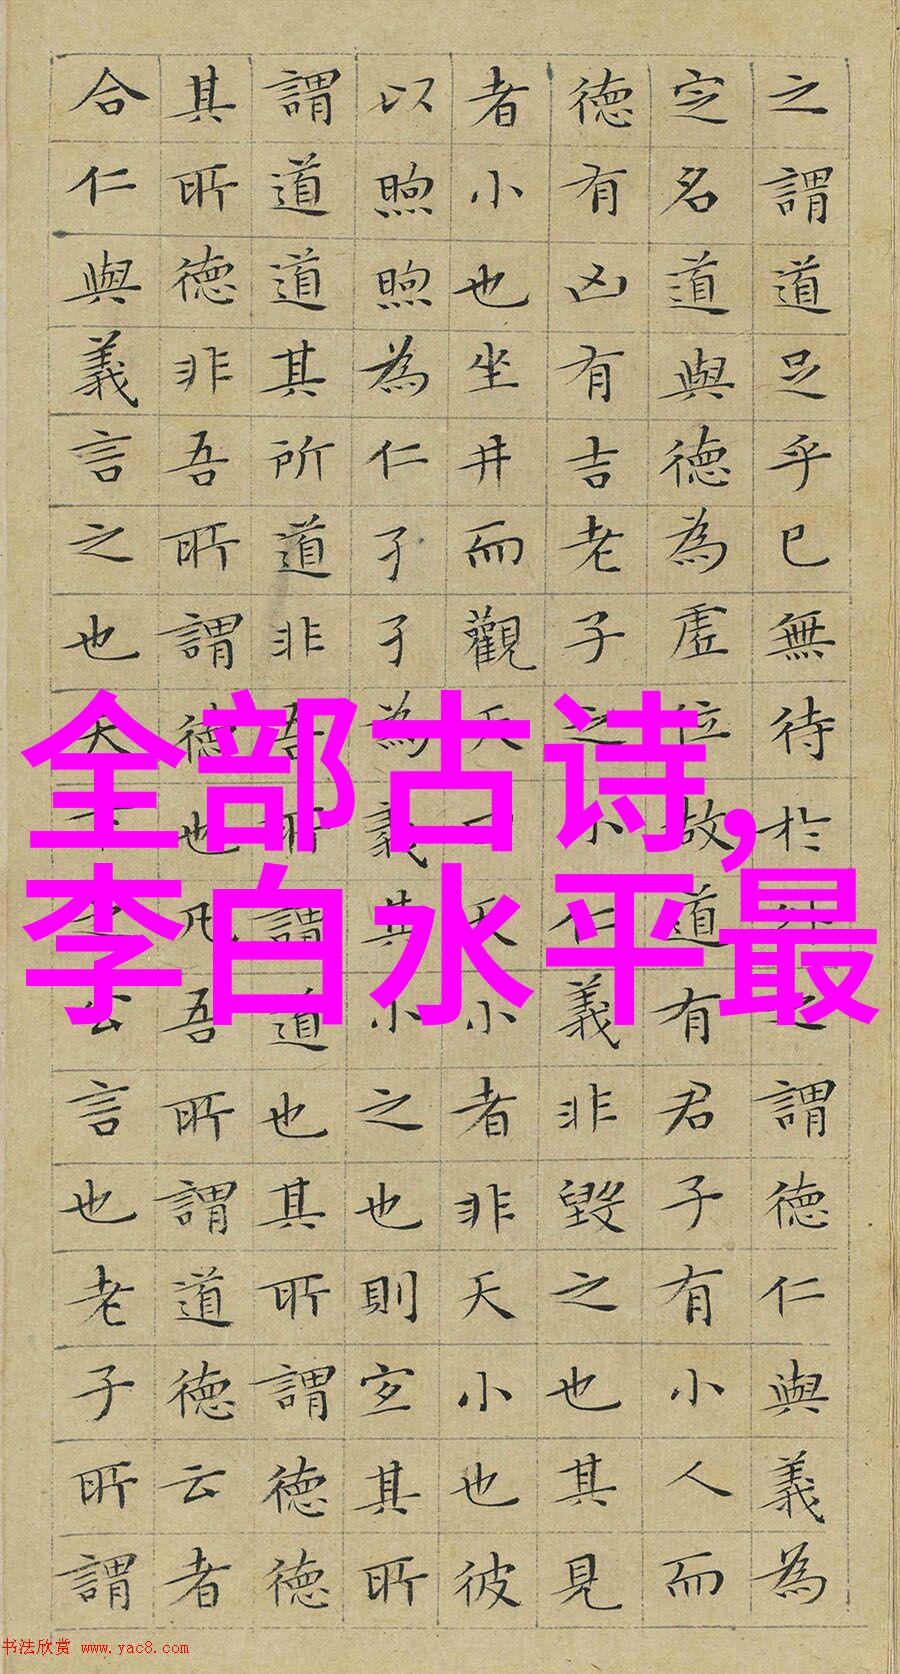 之謂道足乎已無待於之謂德仁與義為
定名道與德為虛位故道有君子有小人而
德有凶有吉老子之小仁義非毀之也其見
者小也坐井而觀天天小者非天小也彼
以煦煦為仁孑孑為義其小之也則宜其所
謂道道其所道非吾所謂道也其所謂德德
其所德非吾所謂德也凡吾所謂道德云者
合仁與義言之也天之公言也老子所謂
全部古诗,
李白水平最
书法欣赏 www.yac8.com